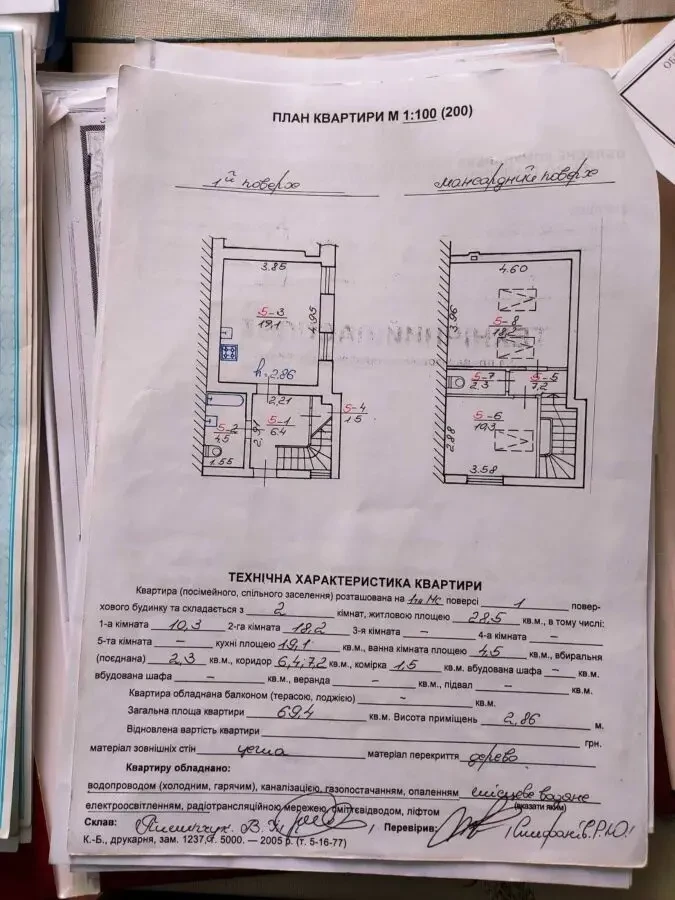 ПЛАН КВАРТИРИ М 1:100 (200)
1й поверх
мансардний поверх
3.85
5-3
19,1
4.95
h=2.86
2,21
5-2
4,5
1.55
5-1
6.4
2,91
5-4
1.5
4.60
3.96
5-8
18,2
5-7
2.3
5-5
7,2
5-6
10,3
2.88
3.58
ТЕХНІЧНА ХАРАКТЕРИСТИКА КВАРТИРИ
Квартира (посімейного, спільного заселення) розташована на 1му МС поверсі 1 повер-
хового будинку та складається з 2 кімнат, житловою площею 28.5 кв.м., в тому числі:
1-а кімната 10,3 2-га кімната 18,2 3-я кімната – 4-а кімната –
5-та кімната – кухні площею 19,1 кв.м., ванна кімната площею 4,5 кв.м., вбиральня
(поєднана) 2,3 кв.м., коридор 6,4; 7,2 кв.м., комірка 1,5 кв.м. вбудована шафа – кв.м.
вбудована шафа – кв.м., веранда – кв.м., підвал – кв.м.
Квартира обладнана балконом (терасою, лоджією) – кв.м.
Загальна площа квартири 69.4 кв.м. Висота приміщень 2,86 м.
Відновлена вартість квартири грн.
матеріал зовнішніх стін цегла матеріал перекриття дерево
Квартиру обладнано:
водопроводом (холодним, гарячим), каналізацією, газопостачанням, опаленням місцеве водяне
електроосвітленням, радіотрансляційною мережею, сміттєвідводом, ліфтом (вказати яким)
Склав: В. Перевірив: Р.Ю.
К.-Б., друкарня, зам. 1237, г. 5000. — 2005 р. (т. 5-16-77)